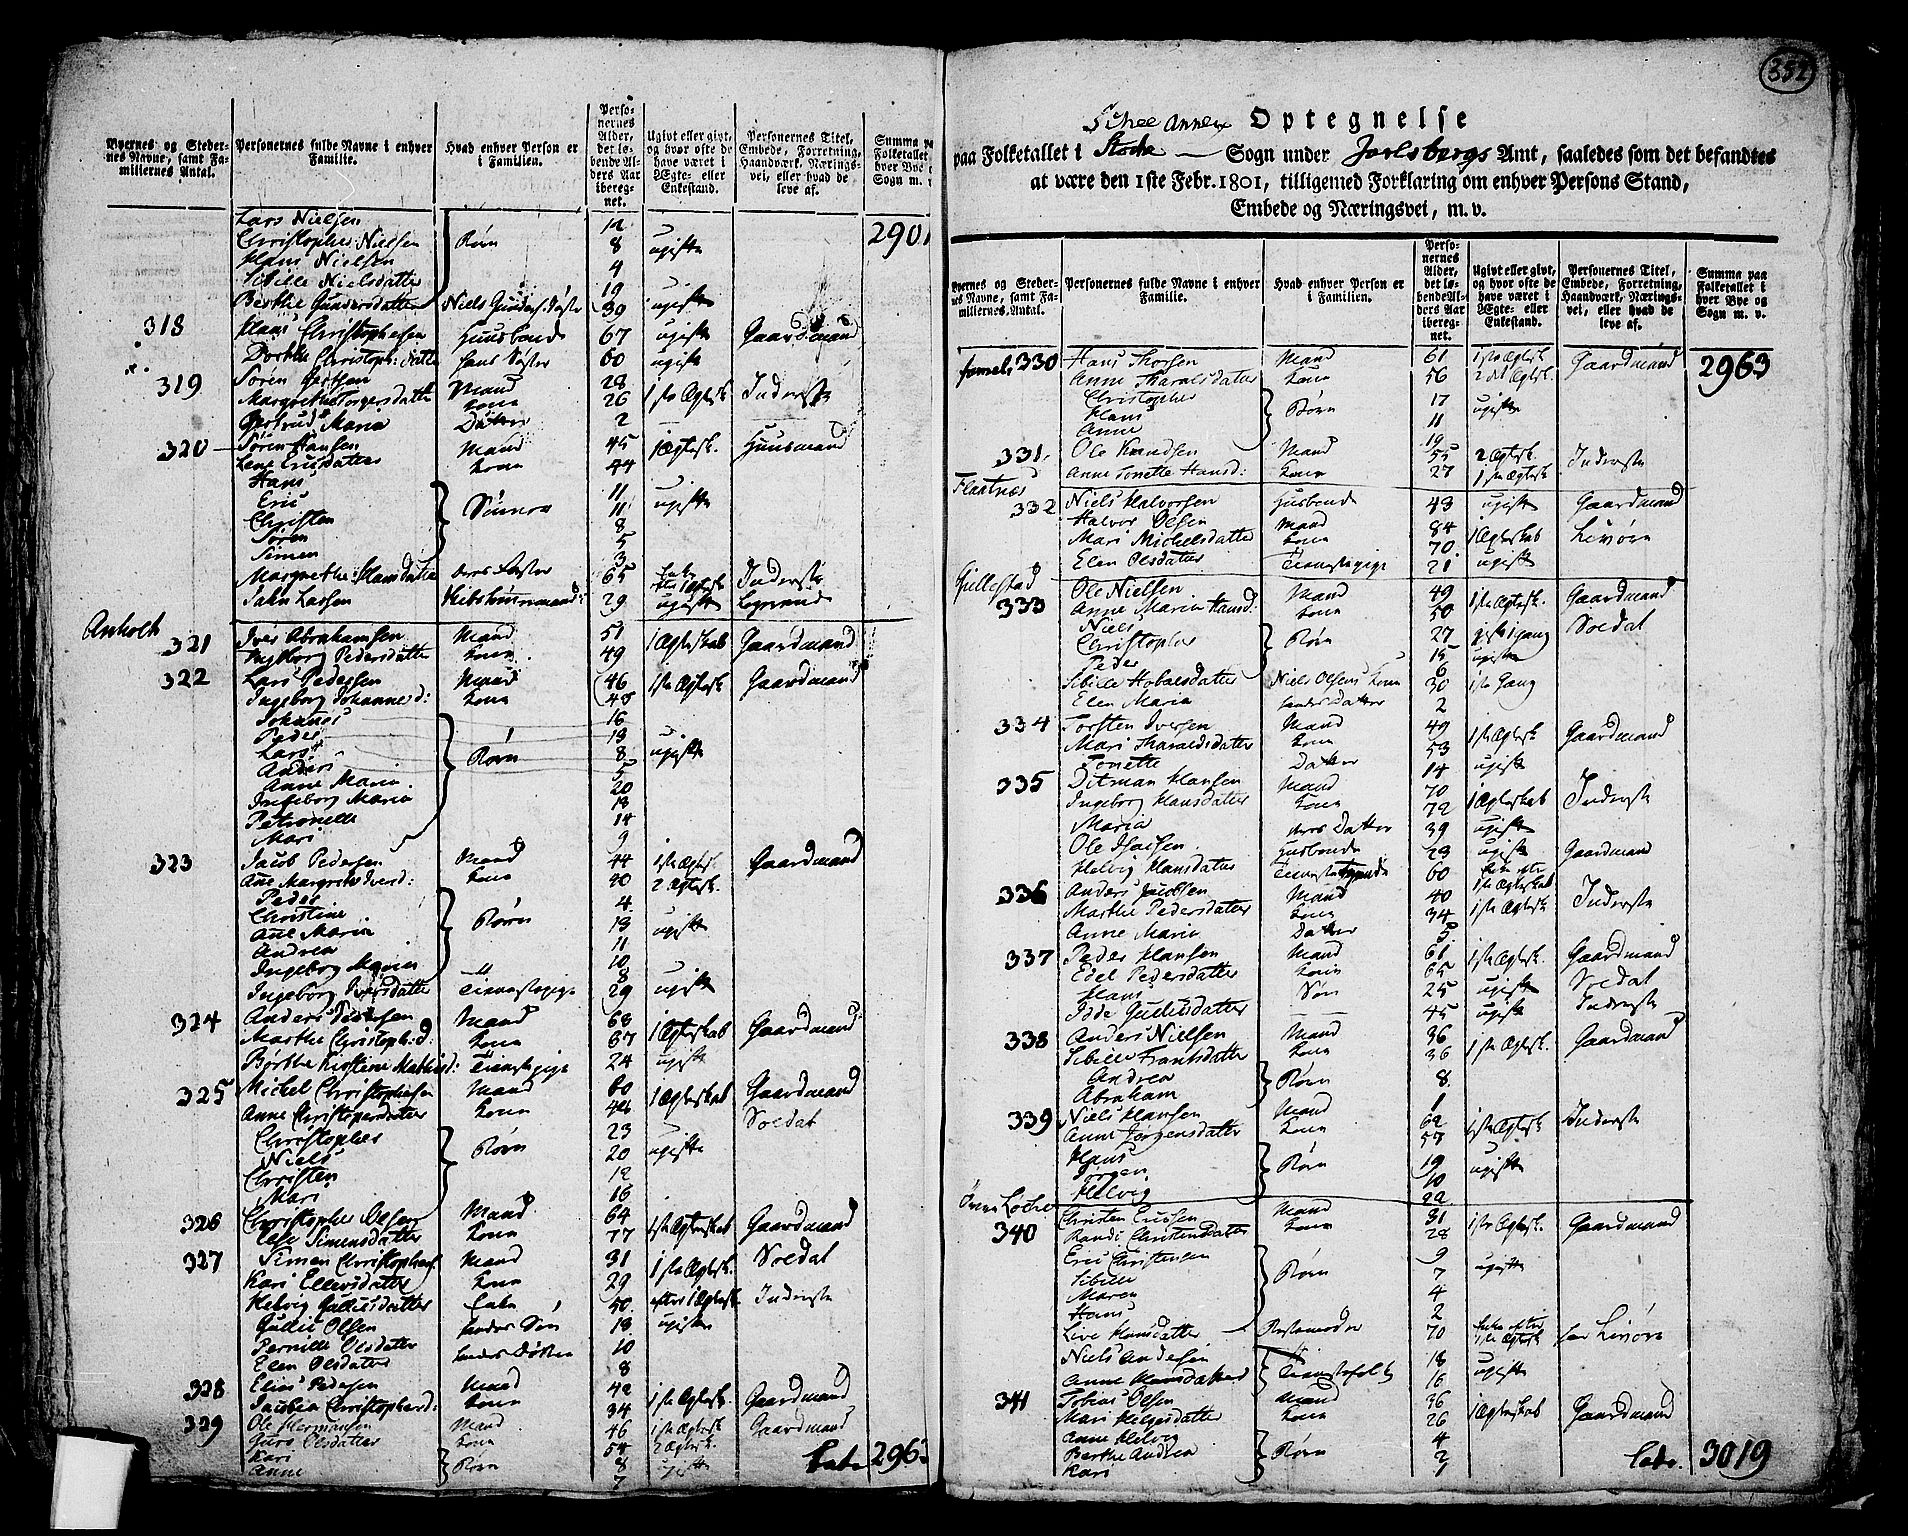 Byernes og Steder-
nes Navne, samt Fa-
milliernes Antal.
Personernes fulde Navne i enhver
Familie.
Hvad enhver Person er
i Familien.
Perso-
nernes
Alder,
det lø-
bende Al-
ders Aar
ibereg-
net.
Ugivt eller givt,
og hvor ofte de
have været i
Ægte- eller
Enkestand.
Personernes Titel,
Embede, Forretning,
Haandværk, Nærings-
vei, eller hvad de
leve af.
Summa
Folketallet
hver Bye
Sogn m.
Lars Nielsen 12 2901
Christopher Nielsen Børn 8 ugifte
Hans Nielsen 4
Sibille Nielsdatter 19
Berthe Gundersdatter 39 ugifte
318 Hans Christophersen Huusbonde 67 ugifte Gaardmand
Dorthe Christoph: datter hans Søster 60 ugift
319 Søren Gertsen Mand 28 1ste Ægtesk Inderste
Margrethe Torgersdatter Kone 26
Gertrud Maria Datter 2
320 Søren Hansen Mand 45 1 Ægtesk. Huusmand
Lene Ericsdatter Kone 44
Hans 11
Eric Sönner 11 ugifte
Christen 8
Søren 5
Simen 3
Margrethe Hansdatter 65 Inderste
29 ugift
Anholt
321 Iver Abrahamsen Mand 51 1 Ægteskab Gaardmand
Ingborg Pedersdatter Kone 49
322 Lars Pedersen Mand 46 1ste Ægtesk. Gaardmand
Ingeborg Johannesd: Kone 45
Johanes 16
Peder 13
Lars Børn 8 ugifte
Anders 5
Anne Maria 20
Ingeborg Maria 18
Petronelle 14
Mari 9
323 Jacob Pedersen Mand 44 1ste Ægtesk. Gaardmand
Ane Margrethe Iversd: Kone 40 2 Ægtesk.
Peder 4
Christine Børn 13 ugifte
Ane Maria 11
Andrea 10
Ingeborg Maria 8
Ingeborg Iversdatter Tienestepige 29 ugift
324 Anders Pedersen Mand 68 1 Ægteskab Gaardmand
Marthe Christoph:d: Kone 67
Børthe Kirstine Mathisd: Tienestepige 24 ugift
325 Michel Christophersen Mand 60 1 Ægteskab Gaardmand
Anne Christophersdatter Kone 44 Soldat
Christopher 23
Niels Børn 20 ugifte
Christen 12
Mari 16
326 Christopher Olsen Mand 64 1ste Ægteskab Gaardmand
Simensdatter Kone 77
327 Simen Christophers: Mand 31 1ste Ægtesk. Soldat
Kari Ellevsdatter Kone 29
Helvig Gulliksdatter Enke 50 efter 1 Ægtesk. Inderste
Gulic Olsen hendes Søn 13 ugifte
Pernille Olsdatter hendes Døtre 10
Elen Olsdatter 8
328 Elias Pedersen Mand 42 1ste Ægtesk. Gaardmand
Jacobia Christophersd: Kone 34
329 Ole Hermansen Mand 46 1ste Ægtesk Gaardmand
Guro Olsdatter Kone 54 2 Ægtesk.
Kari Børn 8 ugifte
Anne 7
Lat. 296
352
Annex Optegnelse
paa Folketallet i Stocke Sogn under Jarlsbergs Amt, saaledes som det befandtes
at være den 1ste Febr. 1801, tilligemed Forklaring om enhver Persons Stand,
Embede og Næringsvei, m. v.
Byernes og Steder-
nes Navne, samt Fa-
milliernes Antal.
Personernes fulde Navne i enhver
Familie.
Hvad enhver Person er
i Familien.
Perso-
nernes
Alder,
det lø-
bende Al-
ders Aar
ibereg-
net.
Ugivt eller givt,
og hvor ofte de
have været i
Ægte- eller
Enkestand.
Personernes Titel,
Embede, Forretning,
Haandværk, Nærings-
vei, eller hvad de
leve af.
Summa paa
Folketallet i
hver Bye og
Sogn m. v.
330 Hans Thorsen Mand 61 1ste Ægtesk Gaardmand 2963
Anne Tharalsdatter Kone 56 2det Ægtesk.
Christopher 17
Hans Børn 11 ugifte
Anne 19
331 Ole Knudsen Mand 55 2 Ægtesk. Inderste
Anne Tonette Hansd: Kone 27 1ste Ægtesk
Flaatnæs
332 Niels Halvorsen Husbonde 43 ugift Gaardmand
Halvor Olsen Mand 84 1 Ægteskab Livøre
Mari Michelsdatter Kone 70
Elen Olsdatter Tienestepige 21 ugift
Gillestad
333 Ole Nielsen Mand 49 1ste Ægtesk. Gaardmand
Anne Maria Hansd: Kone 50
Niels 27 gift 1 gang Soldat
Christopher Børn 15 ugifte
Peder 6
Sibille Hovalsdatter Niels Olsens Kone 30 1ste Gang
Elen Maria hendes Datter 2
334 Torsten Iversen Mand 49 1ste Ægtesk Gaardmand
Mari Tharaldsdatter Kone 53
Tonette Datter 14 ugift
335 Ditman Hansen Mand 70 1 Ægteskab Inderste
Ingeborg Hansdatter Kone 72
Maria deres Datter 39 ugift
Ole Isacsen Husbonde 29 ugift Gaardmand
Helvig Hansdatter 60 Enke efter 1ste Ægteskab
336 Anders Jacobsen Mand 40 1ste Ægtesk. Inderste
Marthe Pedersdatter Kone 34
Anne Maria Datter 5
337 Peder Hansen Mand 61 1ste Ægtesk. Gaardmand
Edel Pedersdatter Kone 65
Hans Søn 25 ugift Soldat
Idde Gulliksdatter 45 ugift Inderste
338 Anders Nielsen Mand 36 1ste Ægtesk. Gaardmand
Sibille Frantsdatter Kone 36
Andrea Børn 8
Abraham 1
339 Niels Hansen Mand 62 1ste Ægtesk. Inderste
Anne Jørgensdatter Kone 57
Hans 19
Jørgen Børn 10 ugifte
Helvig 22
340 Christen Ericsen Mand 31 1ste Ægtesk. Gaardmand
Randi Christensdatter Kone 28
Eric Christensen 9
Sibille Børn 7 ugifte
Maren 4
Hans 2
Live Hansdatter 70 Enke efter 1ste Ægtesk har Livøre
Niels Andersen Tienestefolk 18 ugifte
Anne Hansdatter 16
341 Tobias Olsen Mand 36 1 Ægteskab Gaardmand
Mari Helgesdatter Kone 26
Anne Helvig 4
Berthe Andrea Børn 2
Kari 1
Lat. 3019